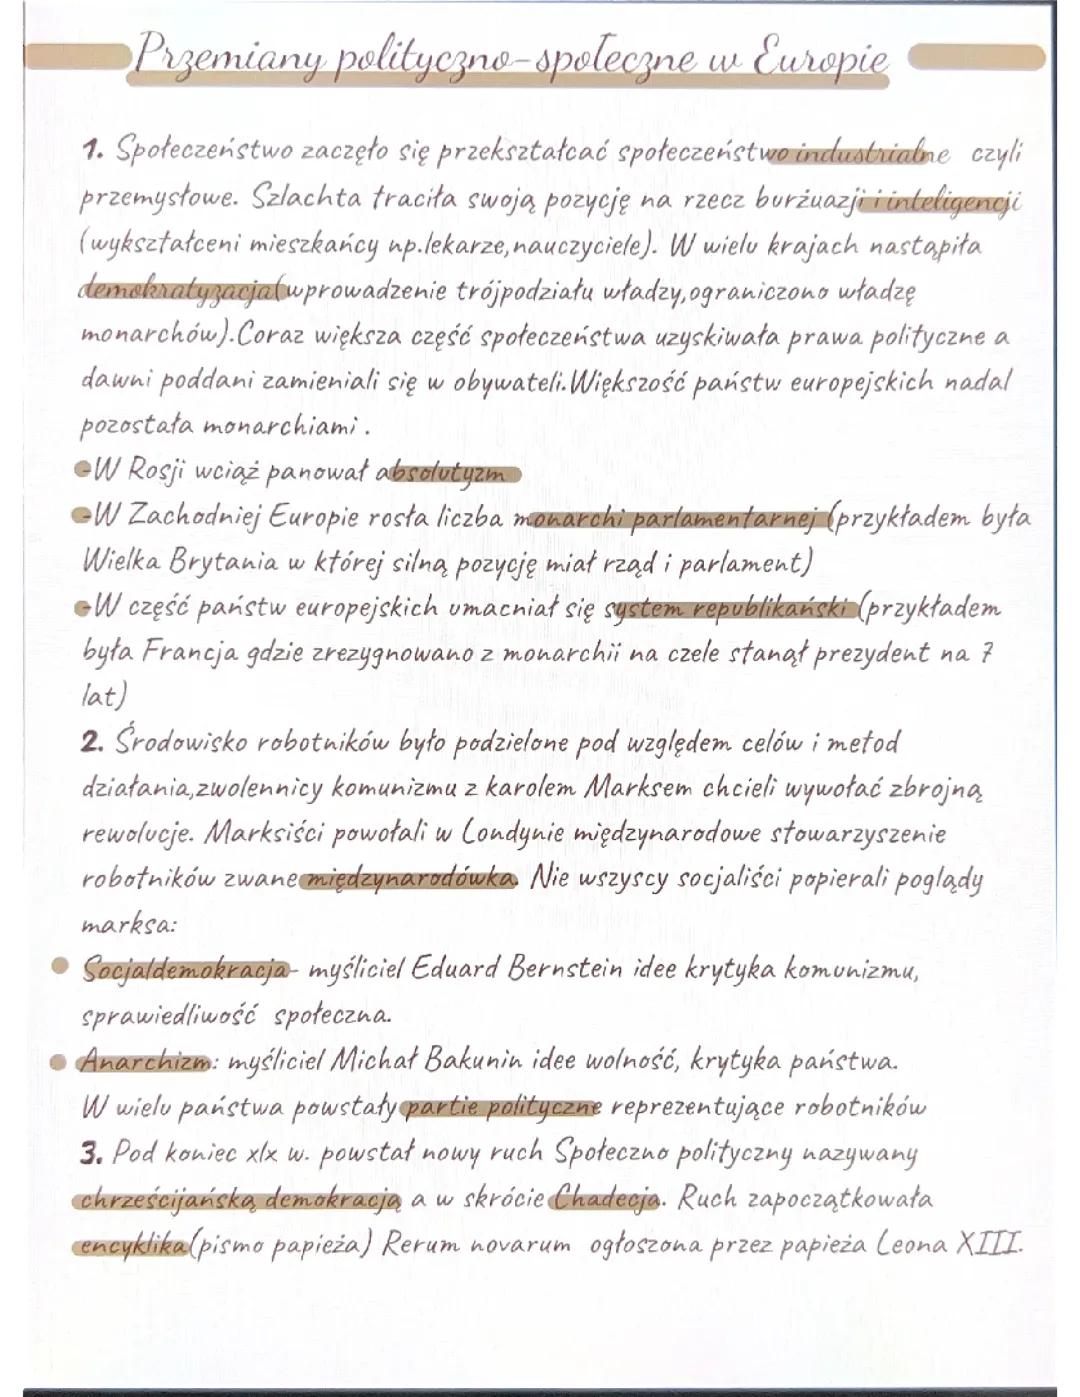 Przemiany polityczno-społeczne w Europie
1. Społeczeństwo zaczęło się przekształcać społeczeństwo industrialne czyli
przemysłowe. Szlachta traciła swoją pozycję na rzecz burżuazji i inteligencji
(wykształceni mieszkańcy np.lekarze,nauczyciele). W wielu krajach nastąpiła
demokratyzacja(wprowadzenie trójpodziału władzy,ograniczono władzę
monarchów).Coraz większa część społeczeństwa uzyskiwała prawa polityczne a
dawni poddani zamieniali się w obywateli.Większość państw europejskich nadal
pozostała monarchiami .
-W Rosji wciąż panował absolutyzm
-W Zachodniej Europie rosła liczba monarchi parlamentarnej (przykładem była
Wielka Brytania w której silną pozycję miał rząd i parlament)
-W część państw europejskich umacniał się system republikański (przykładem
była Francja gdzie zrezygnowano z monarchii na czele stanął prezydent na 7
lat)
2. Środowisko robotników było podzielone pod względem celów i metod
działania,zwolennicy komunizmu z karolem Marksem chcieli wywołać zbrojną
rewolucje. Marksiści powołali w Londynie międzynarodowe stowarzyszenie
robotników zwane międzynarodówka. Nie wszyscy socjaliści popierali poglądy
marksa:
Socjaldemokracja- myśliciel Eduard Bernstein idee krytyka komunizmu,
sprawiedliwość społeczna.
Anarchizm: myśliciel Michał Bakunin idee wolność, krytyka państwa.
W wielu państwa powstały partie polityczne reprezentujące robotników
3. Pod koniec xlx w. powstał nowy ruch Społeczno polityczny nazywany
chrześcijańską demokracją a w skrócie Chadecja. Ruch zapoczątkowała
encyklika(pismo papieża) Rerum novarum ogłoszona przez papieża Leona XIII.